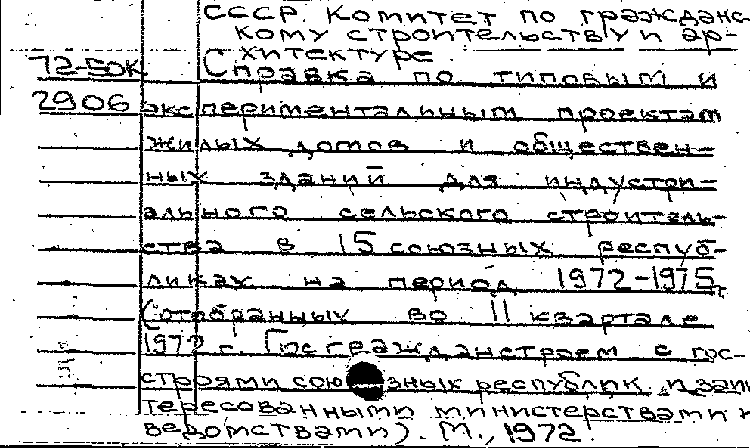 СССР. Комитет по гражданс-
кому строительству и ар-
хитектуре.
72-50к Справка по типовым и
2906 экспериментальным проектам
жилых домов и обществен-
ных зданий для индустри-
ального сельского строитель-
ства в 15 союзных респуб-
ликах на период 1972-1975.
(Отобранных во II квартале
1972 г. Госгражданстроем с гос-
строями союзных республик и заин
тересованными министерствами и
ведомствами). М., 1972.